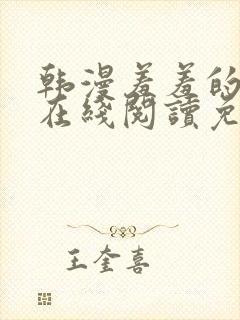 韩漫羞羞的
在线阅读免
王奎喜